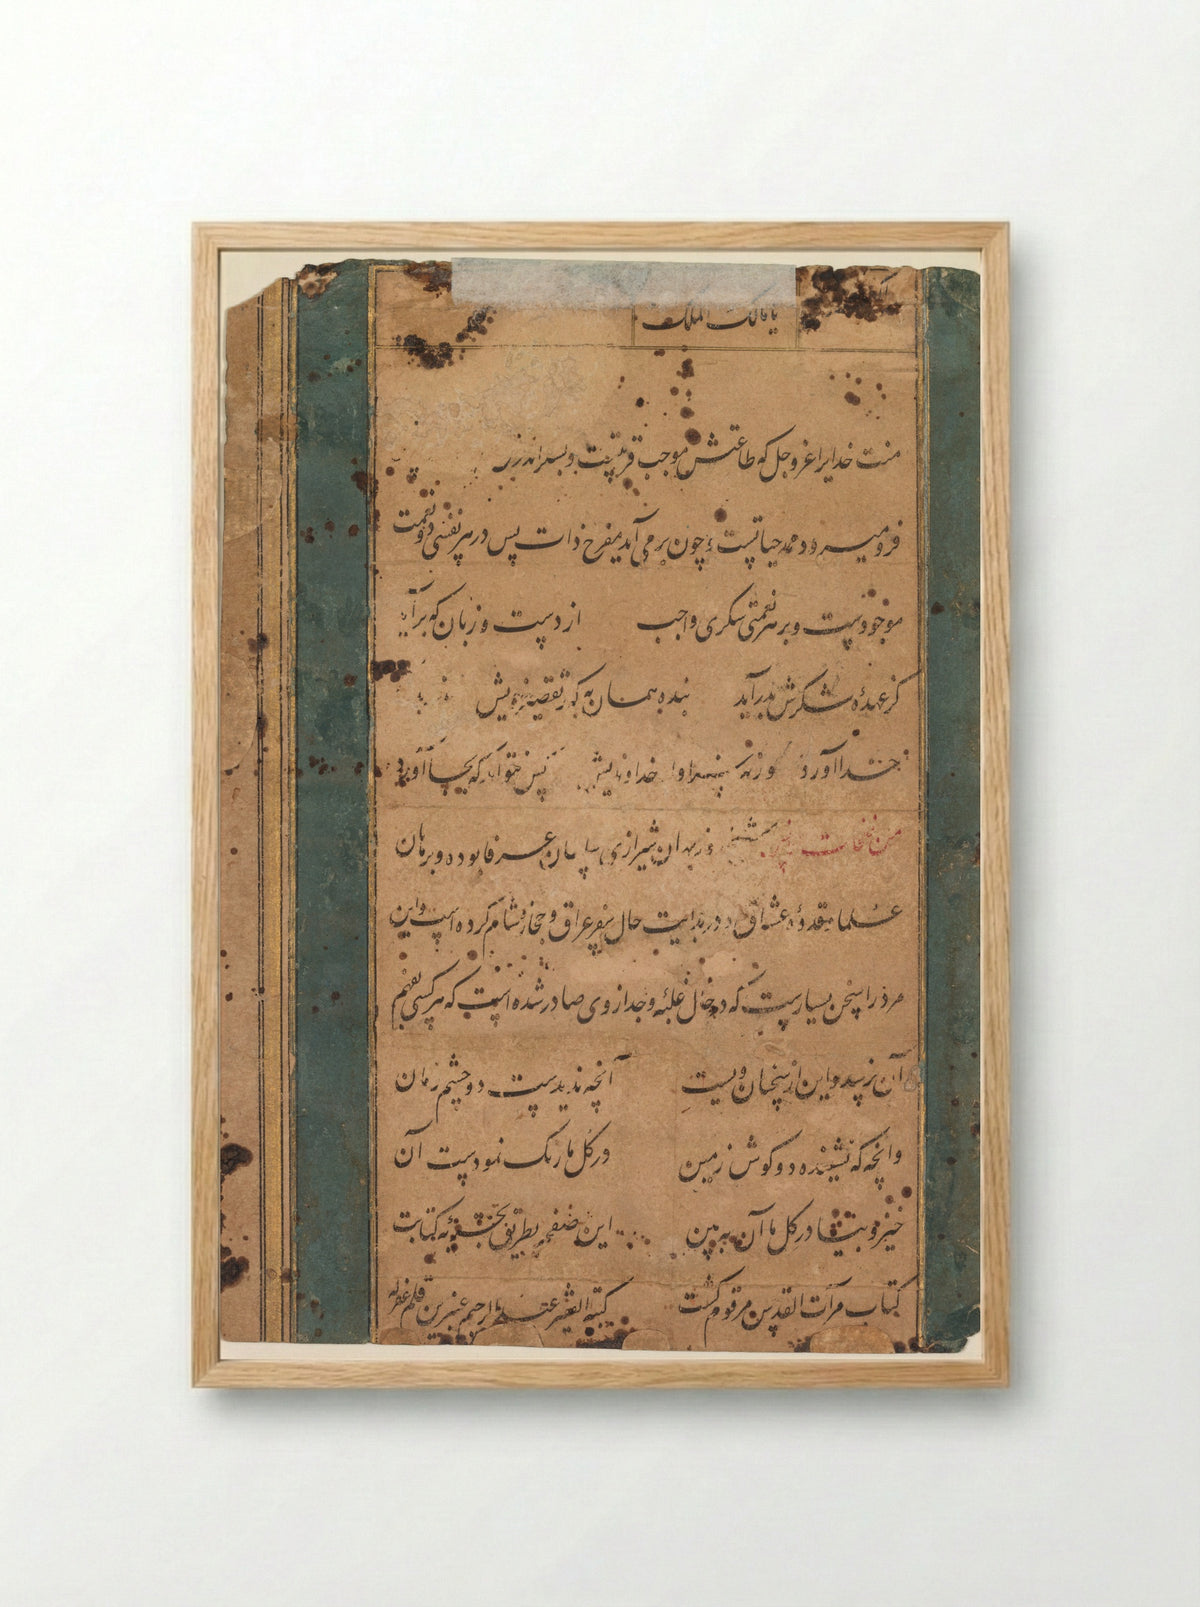 یا مالک الملک
منت خدایرا عز و جل که طاعتش موجب قربتست و بشکر اندرش
فرو میرود ممد حیاتست و چون بر می آید مفرح ذات پس در هر نفسی دو نعمت
موجودست و بر هر نعمتی شکری واجب از دست و زبان که برآید
کز عهده شکرش بدر آید بنده همان به که ز تقصیر خویش
خدا آورد ورنه سزاوار خداوندیش کس نتواند که بجا آورد
من شیخ روزبهان شیرازی عرفا بوده و برهان
علما و قدوه عشاق در بدایت حال سفر عراق و حجاز و شام کرده است و این
مرد را سخن بسیارست که در حال غلبه و وجد از وی صادر شده است که هر کسی بفهم
آن نرسد و این از سخنان ویست آنچه ندیدست دو چشم زمان
وانچه که نشنیده دو گوش زمین در گل ما رنگ نمودست آن
خیز و بیا در گل ما آن ببین این صفحه بطریق کتابت
کتاب مرآت القدس مرقوم گشت کتبه الفقیر عنبرین قلم غفر له